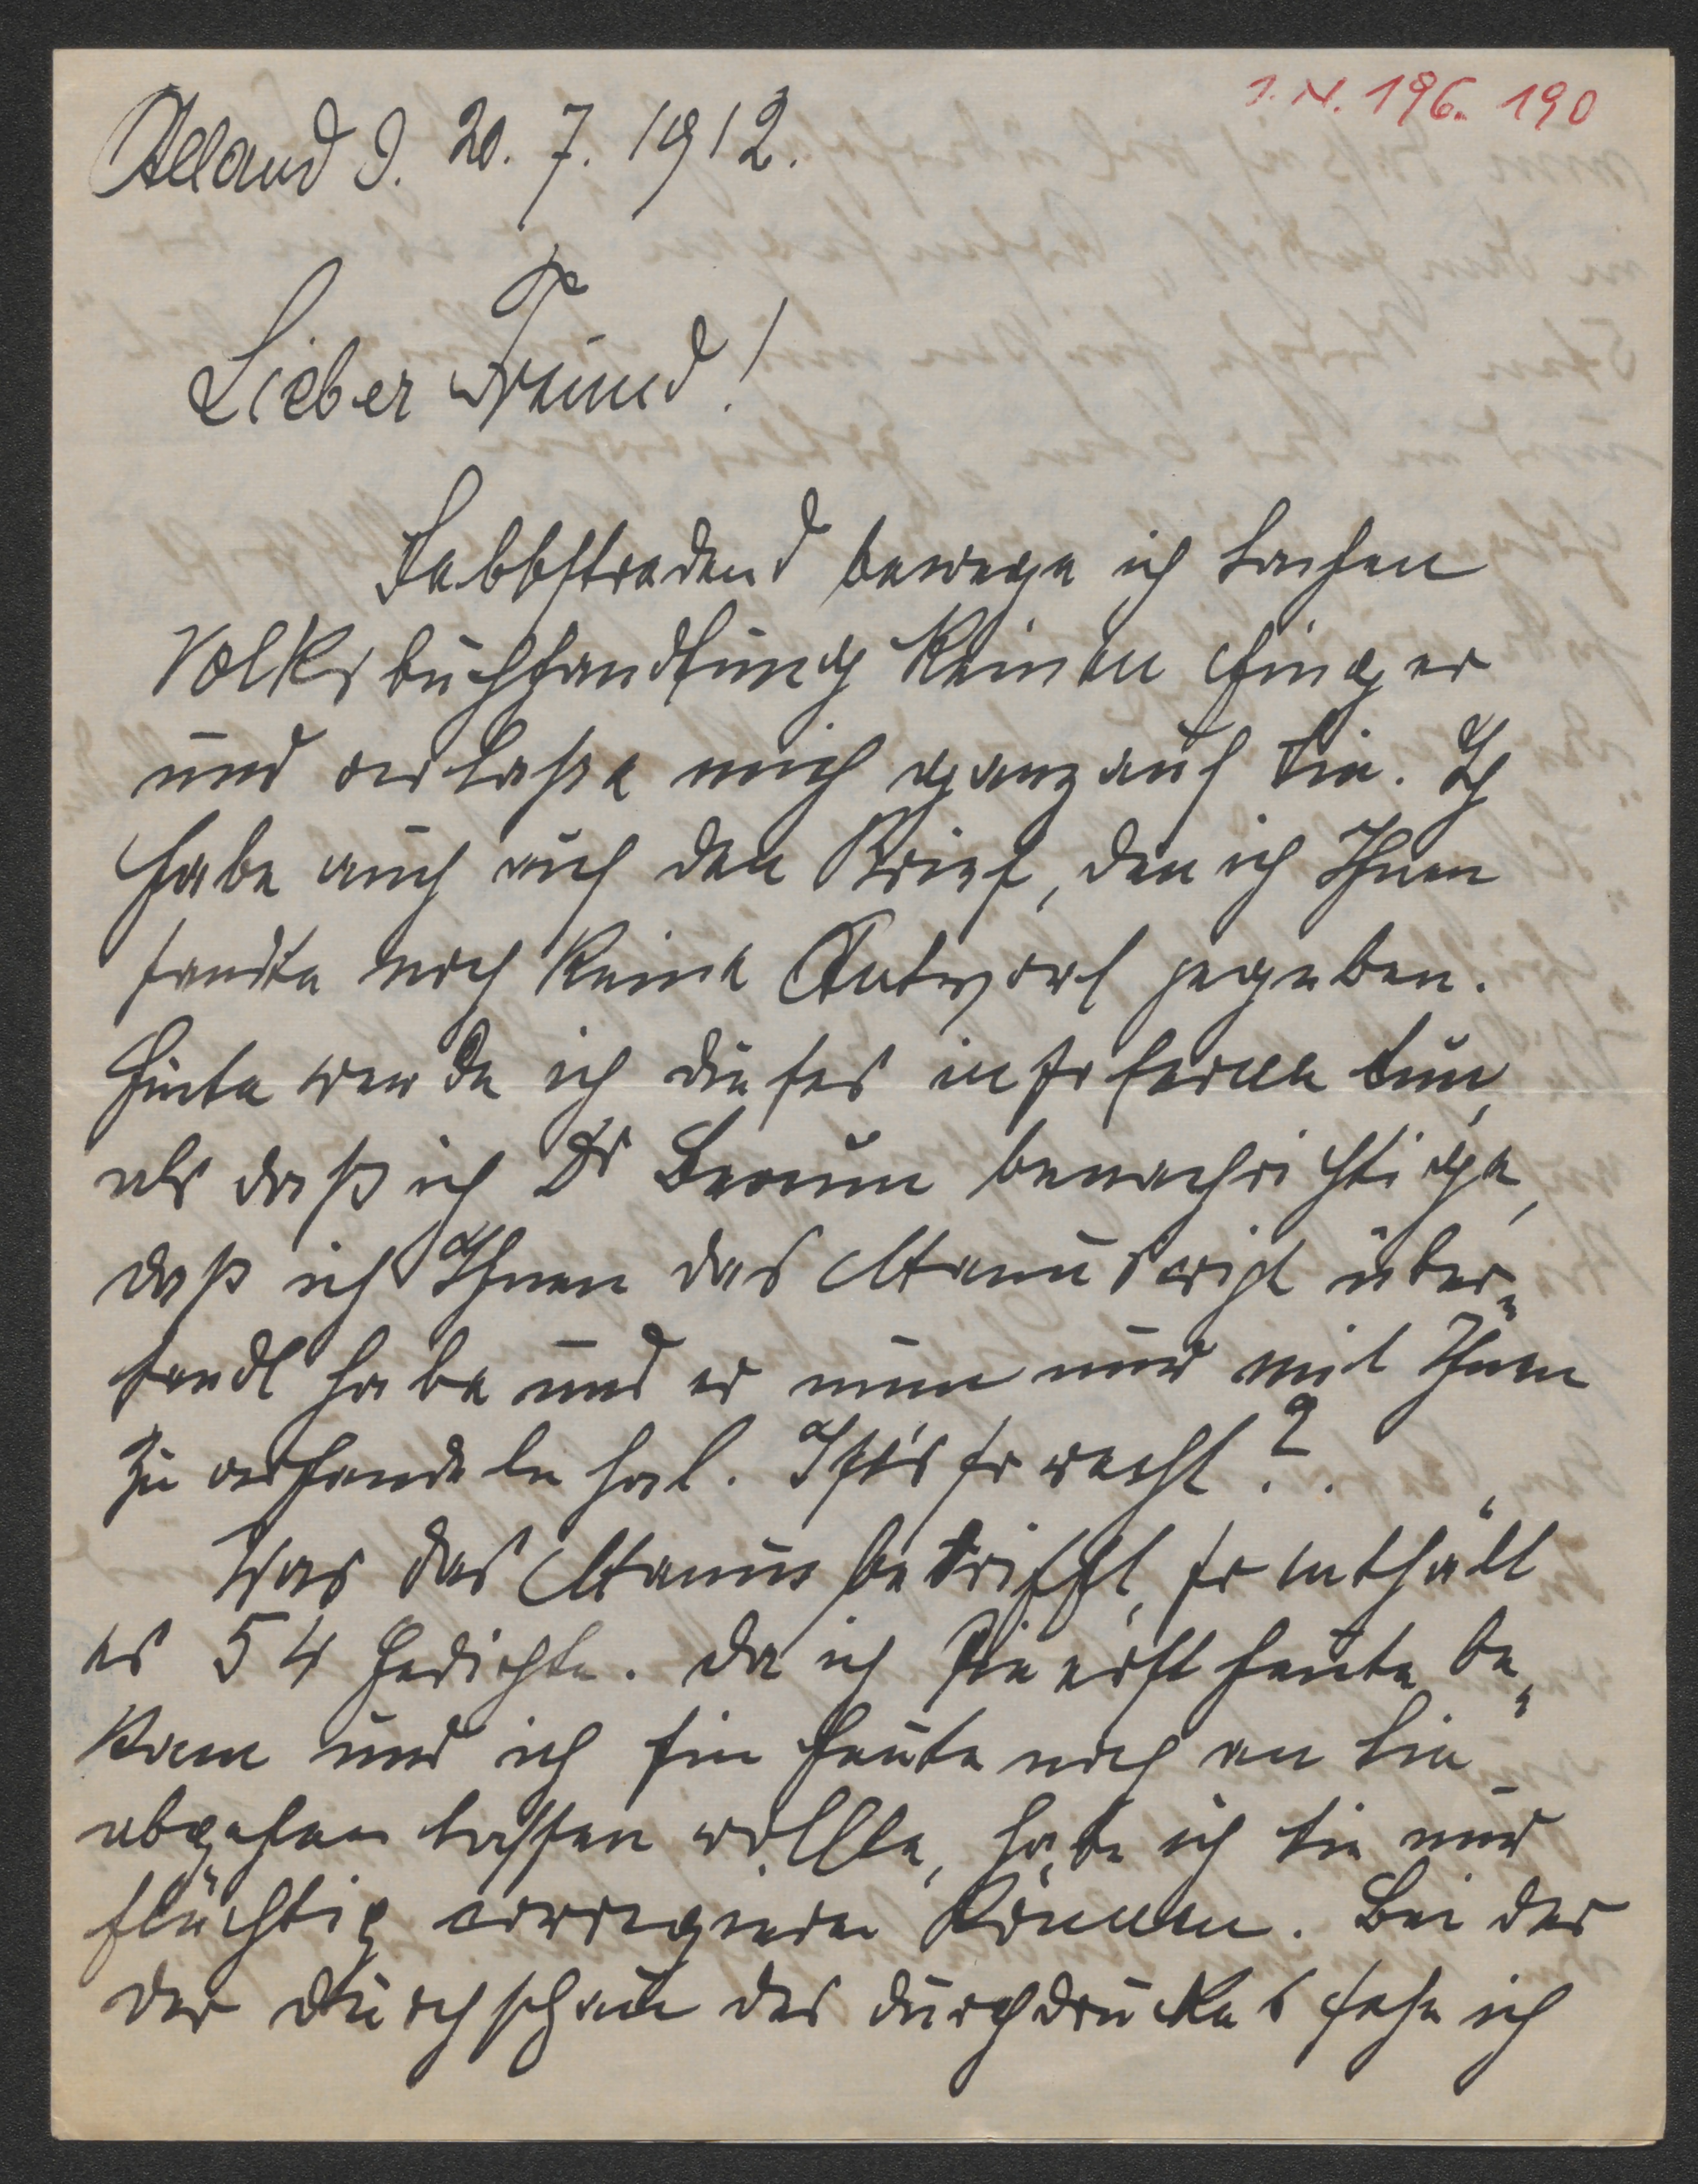 I. N. 196.190
Alland d. 20. 7. 1912.
Lieber Freund!
Selbstredend bewege ich Sachen
Volksbuchhandlung keinen Finger
und verlasse mich ganz auf Sie. Ich
habe auch auf den Brief, den ich Ihnen
sandte noch keine Antwort gegeben.
Heute werde ich dieses insoferne tun,
als daß ich Dr Braun benachrichtige,
daß ich Ihnen das Manuskript über„
sandt habe und er nun nur mit Ihnen
zu verhandeln hat. Ist's so recht?.
Was das Manus betrifft, so enthält
es 54 Gedichte. Da ich sie erst heute be„
kam und ich sie heute noch an Sie
abgehen lassen wollte, habe ich sie nur
flüchtig corregieren können. Bei der
der Durchschau des Durchdruckes sehe ich